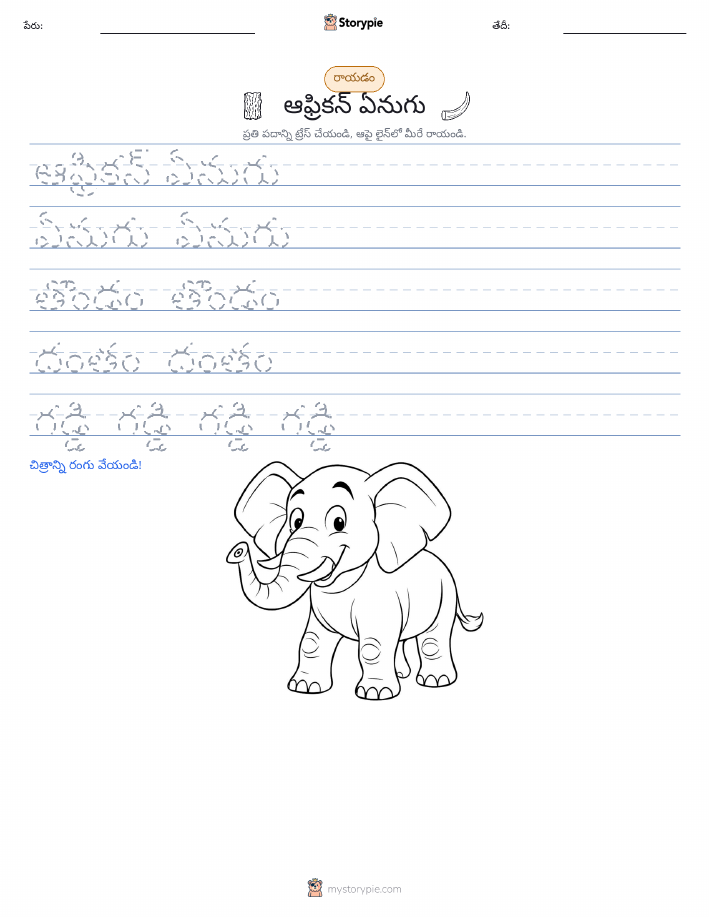 పేరు:
Storypie
తేదీ:
రాయడం
ఆఫ్రికన్ ఏనుగు
ప్రతి పదాన్ని ట్రేస్ చేయండి, ఆపై లైన్‌లో మీరే రాయండి.
ఆఫ్రికన్ ఏనుగు
ఏనుగు ఏనుగు
తొండం తొండం
దంతం దంతం
గడ్డి గడ్డి గడ్డి గడ్డి
చిత్రాన్ని రంగు వేయండి!
mystorypie.com